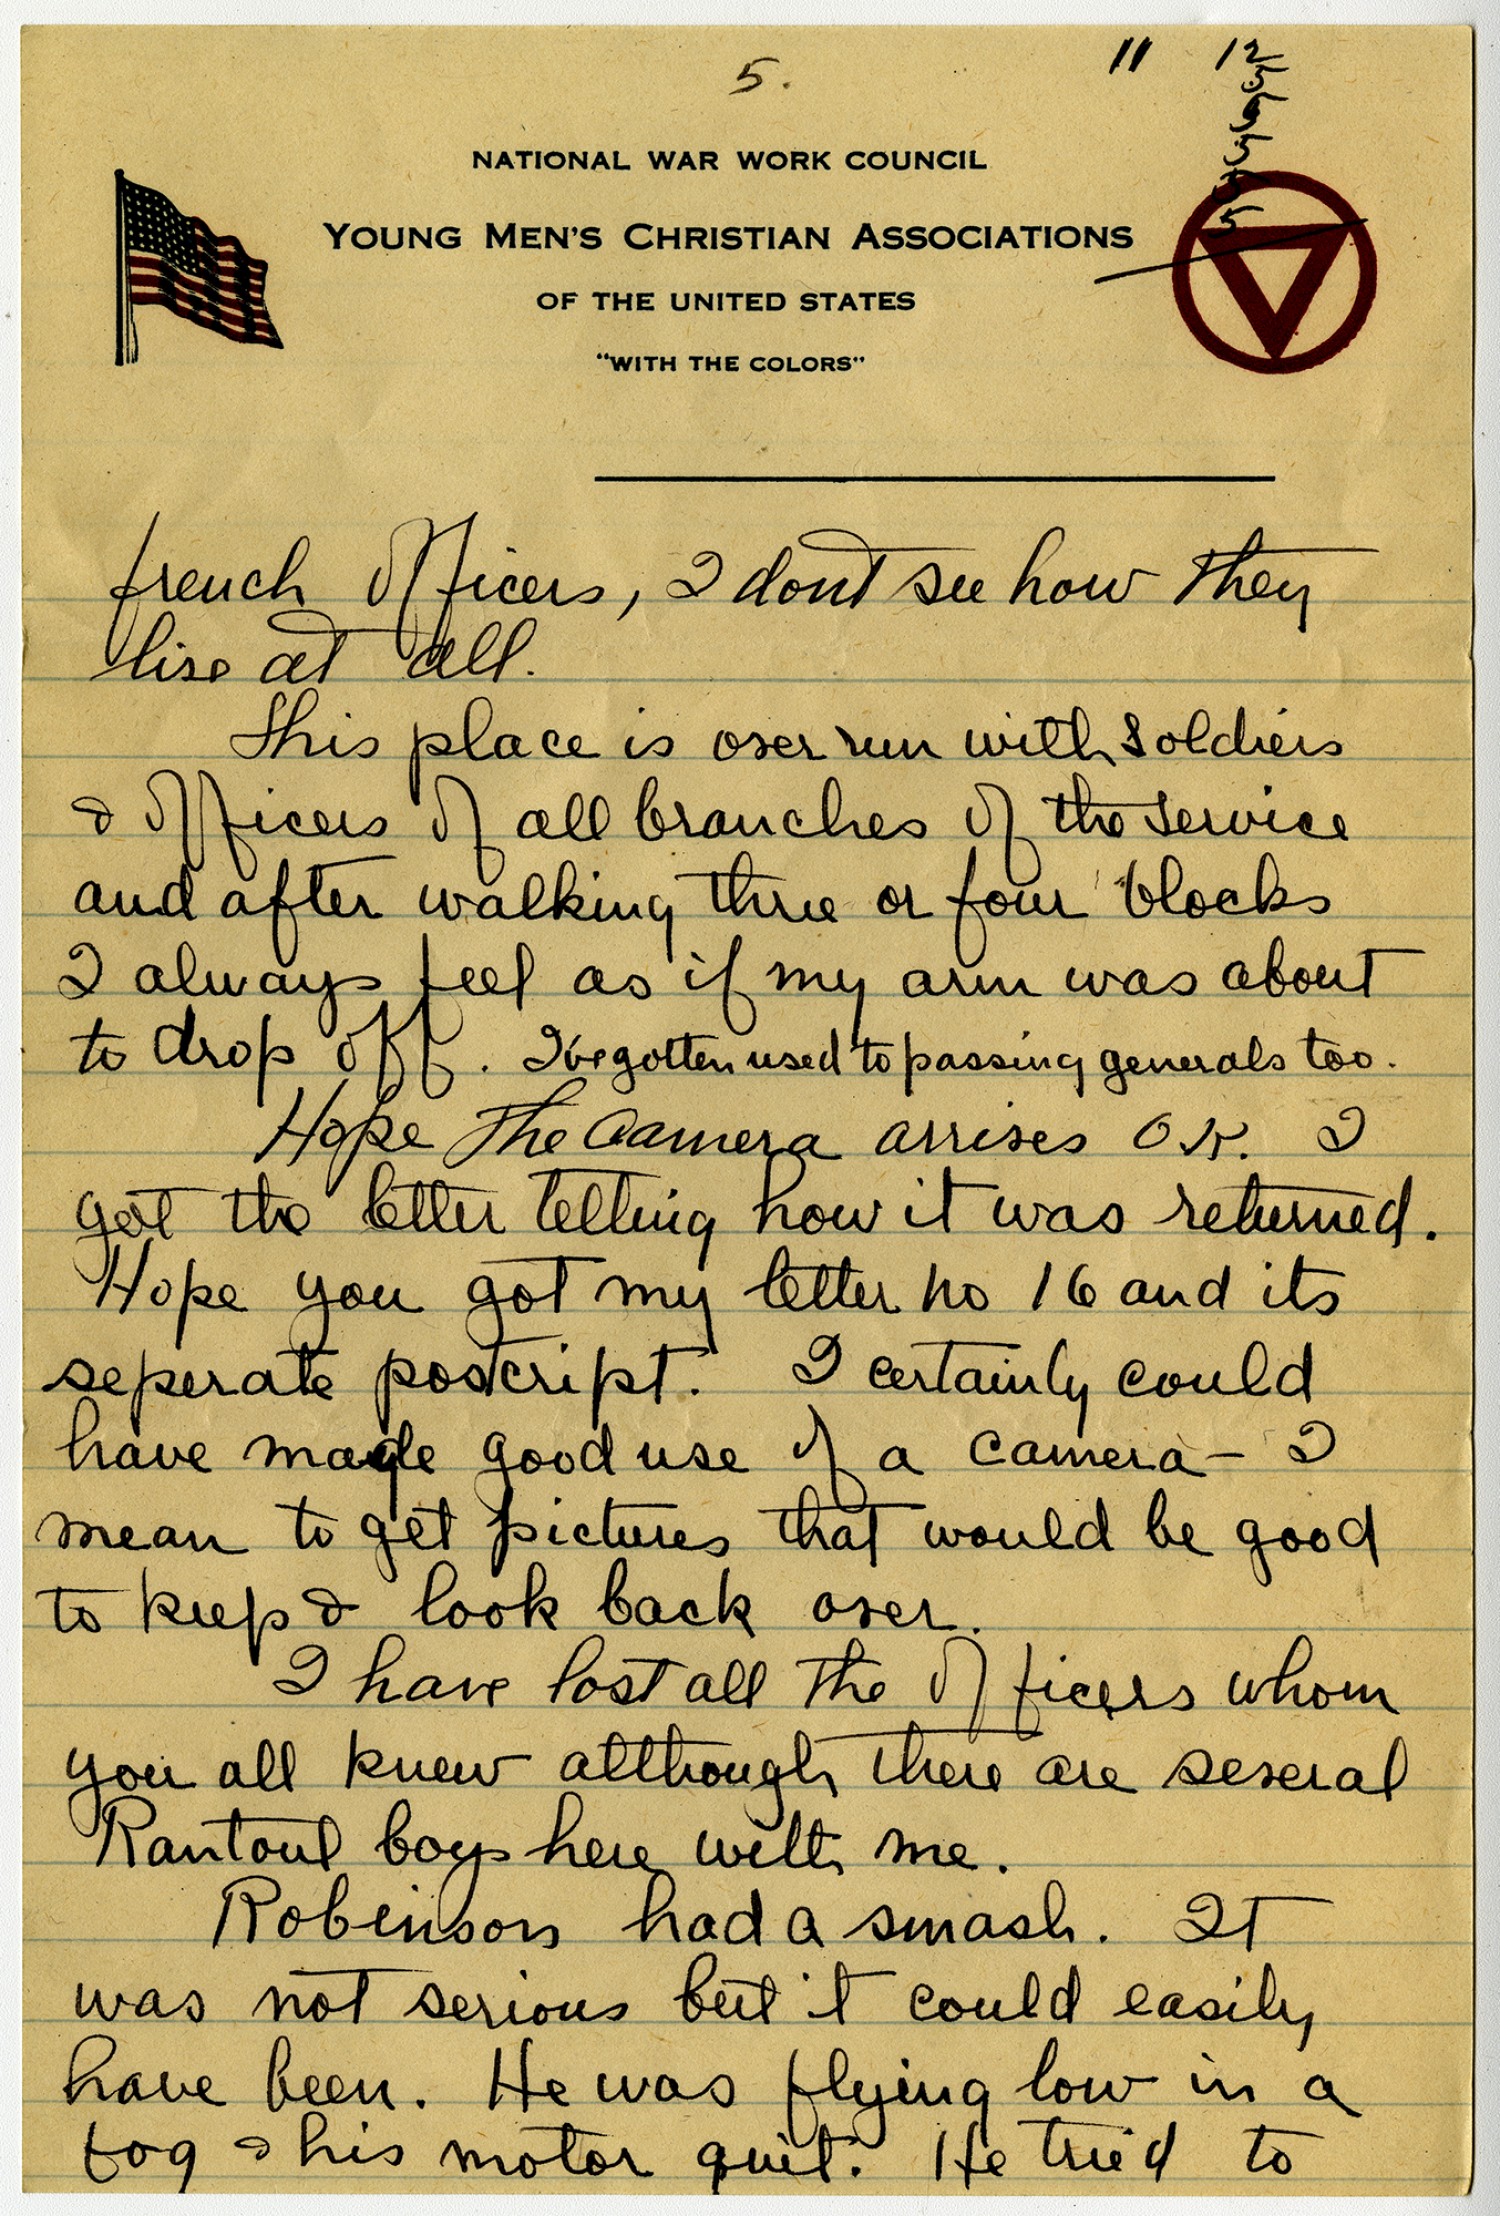 5.
11 12
NATIONAL WAR WORK COUNCIL
YOUNG MEN'S CHRISTIAN ASSOCIATIONS
OF THE UNITED STATES
"WITH THE COLORS"
french officers, I dont see how they
live at all.
This place is over run with soldiers
& officers of all branches of the service
and after walking three or four blocks
I always feel as if my arm was about
to drop off. I've gotten used to passing generals too.
Hope the camera arrives O.K. I
got the letter telling how it was returned.
Hope you got my letter no 16 and its
seperate poscript. I certainly could
have made good use of a camera - I
mean to get pictures that would be good
to keep & look back over.
I have lost all the officers whom
you all knew although there are several
Rantoul boys here with me.
Robinson had a smash. It
was not serious but it could easily
have been. He was flying low in a
fog & his motor quit. He tried to